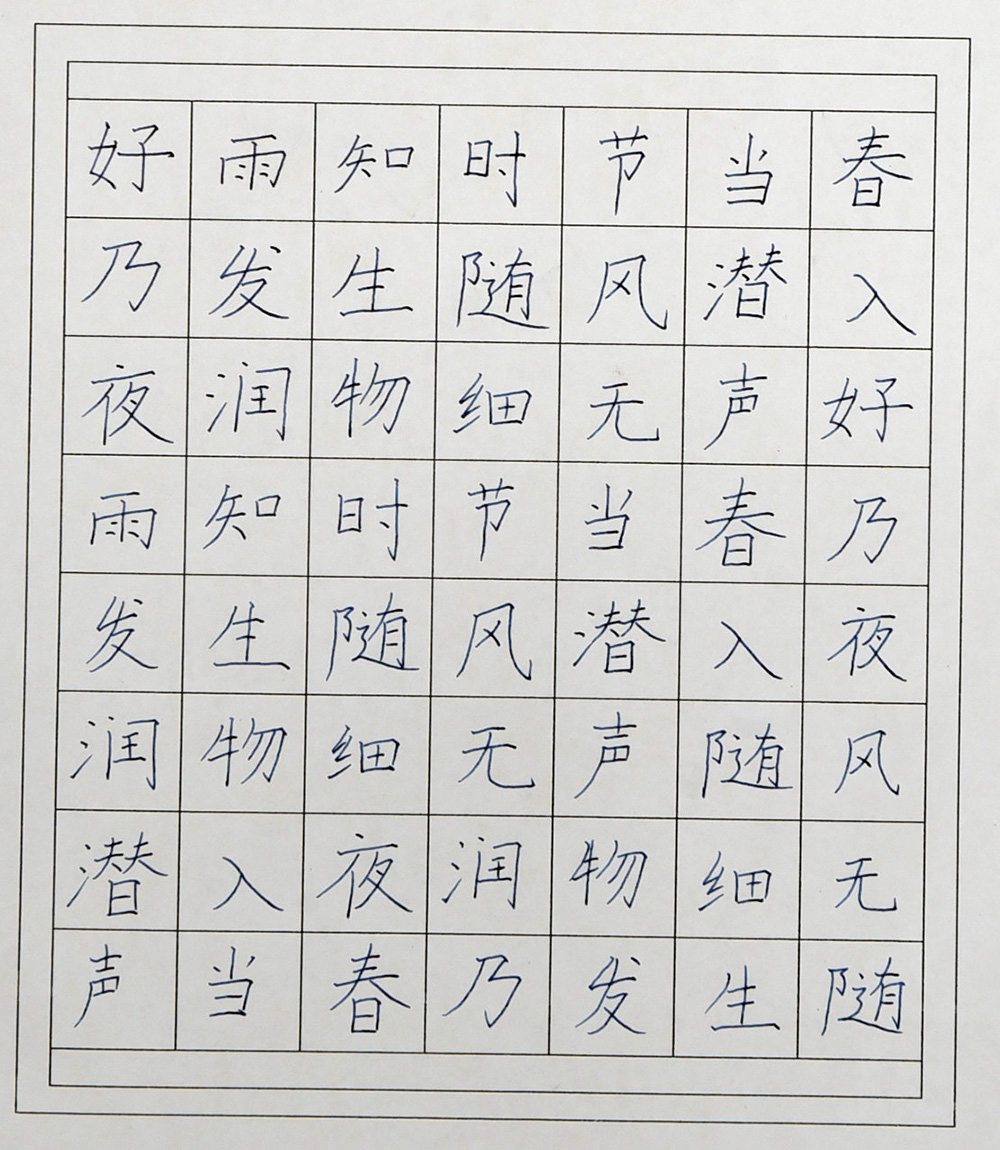 好雨知时节当春
乃发生随风潜入
夜润物细无声好
雨知时节当春乃
发生随风潜入夜
润物细无声随风
潜入夜润物细无
声当春乃发生随